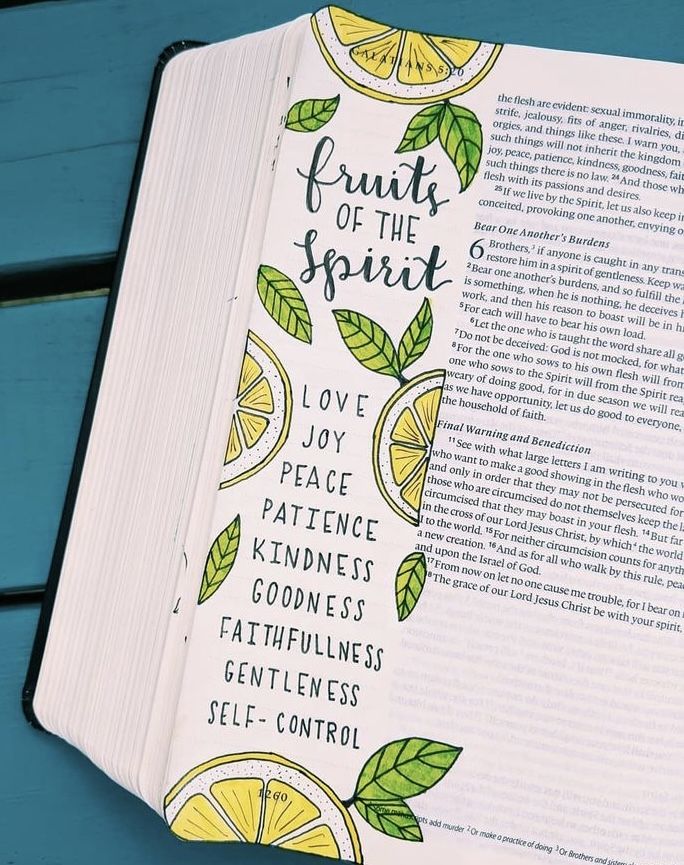 GALATIANS 5:20
fruits
OF THE
Spirit
LOVE
JOY
PEACE
PATIENCE
KINDNESS
GOODNESS
FAITHFULLNESS
GENTLENESS
SELF-CONTROL
1260
the flesh are evident: sexual immorality,
strife, jealousy, fits of anger, rivalries,
orgies, and things like these. I warn you,
such things will not inherit the kingdom
joy, peace, patience, kindness, goodness,
such things there is no law. 24 And those
flesh with its passions and desires.
25 If we live by the Spirit, let us also keep
conceived, provoking one another, envying
Bear One Another's Burdens
6 Brothers,3 if anyone is caught in any
restore him in a spirit of gentleness. Keep
2 Bear one another's burdens, and so fulfill the
is something, when he is nothing, he deceives
work, and then his reason to boast will be in
5 For each will have to bear his own load.
6 Let the one who is taught the word share all
7 Do not be deceived: God is not mocked, for what
8 For the one who sows to his own flesh will from
one who sows to the Spirit will from the Spirit
weary of doing good, for in due season we will
as we have opportunity, let us do good to everyone,
the household of faith.
Final Warning and Benediction
11 See with what large letters I am writing to you
who want to make a good showing in the flesh who
and only in order that they may not be persecuted for
those who are circumcised do not themselves keep the
circumcised that they may boast in your flesh. 14 But far
in the cross of our Lord Jesus Christ, by which4 the world
to the world. 15 For neither circumcision counts for
a new creation. 16 And as for all who walk by this rule,
and upon the Israel of God.
17 From now on let no one cause me trouble, for I bear on
18 The grace of our Lord Jesus Christ be with your spirit,
Some manuscripts add murder 2 Or make a practice of doing 3 Or Brothers and